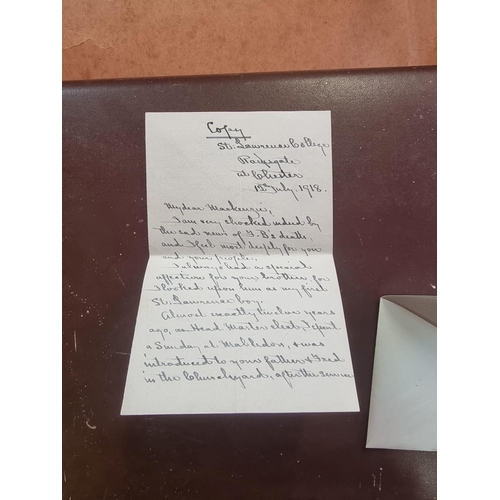 Copy
St. Lawrence College
Ramsgate
at Chester
1st July, 1918.
My dear Mackenzie,
I am very shocked indeed by
the sad news of F.B's death,
and I feel most deeply for you
and your people.
I always had a special
affection for your brother, for
I looked upon him as my first
St. Lawrence boy.
Almost exactly twelve years
ago, as Head Master elect, I spent
a Sunday at Malbledon, & was
introduced to your father & Fred
in the Churchyard, after the service